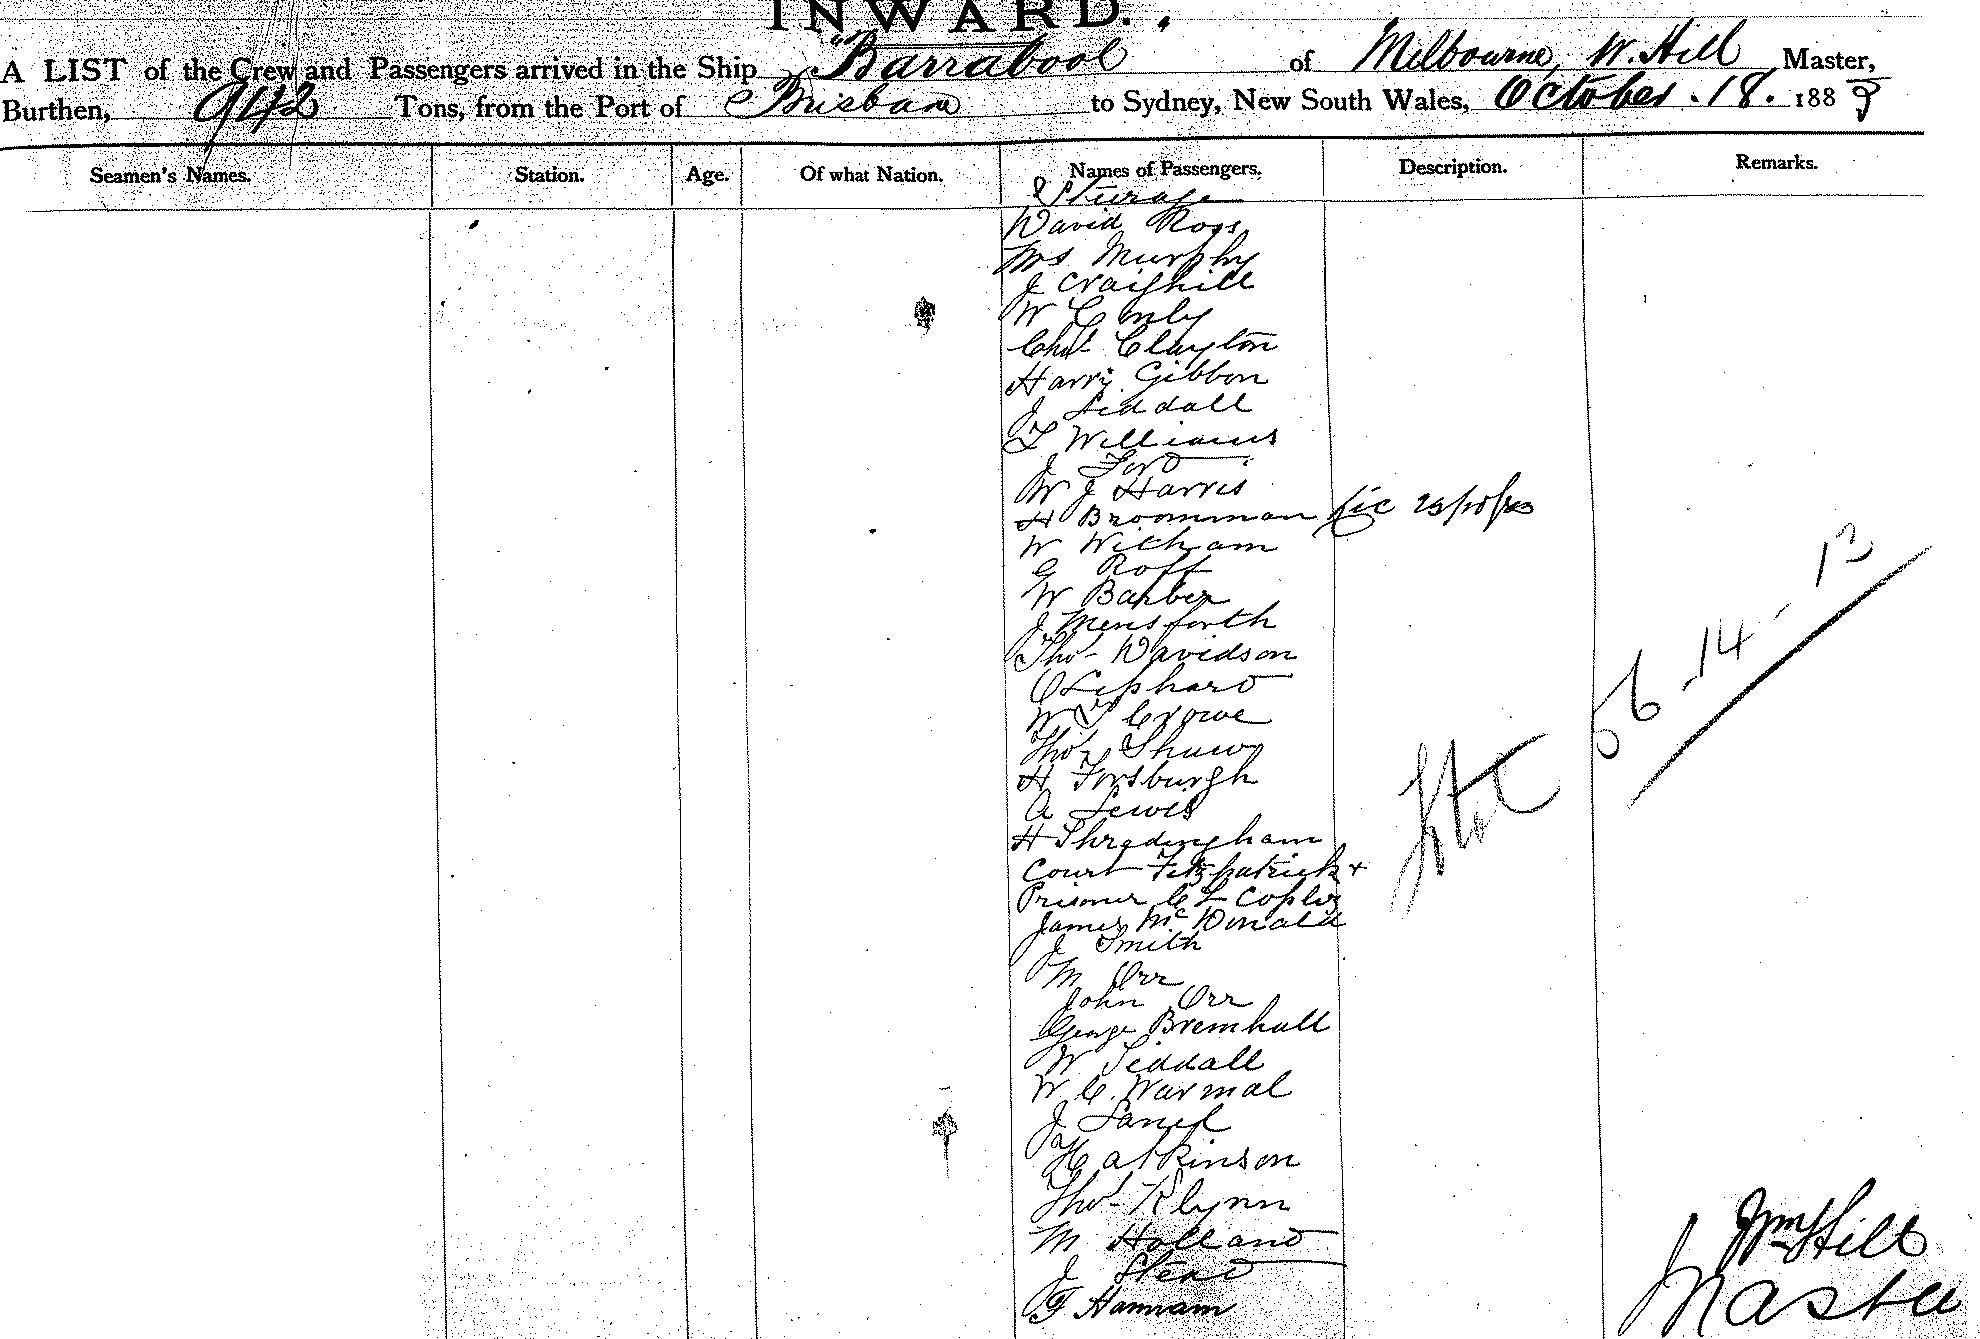 INWARD.
A LIST of the Crew and Passengers arrived in the Ship "Barrabool of Melbourne, W. Hill Master,
Burthen, 942 Tons, from the Port of Brisbane to Sydney, New South Wales, October . 18. 188
Seamen's Names. Station. Age. Of what Nation. Names of Passengers. Description. Remarks.
Sturage
David Ross
Mrs Murphy
J Craighill
W
Chas Clayton
Harry Gibbon
J Siddall
T Williams
J Ford
W J Harris
H Broomman
W Witham
G Roff
W Barber
J Mensforth
Thos Davidson
W T Crowe
Thos Shaw
H Forsburgh
A Lewis
H Shredingham
Court Fitzpatrick +
Prisoner C L Copley
James McDonald
J Smith
M Orr
John Orr
George Bremhall
W Siddall
W C. Warmal
J
H Atkinson
Thos Klynn
M Holland
J Stead
F Hannam
56 . 14 - 13
Wm Hill
Master